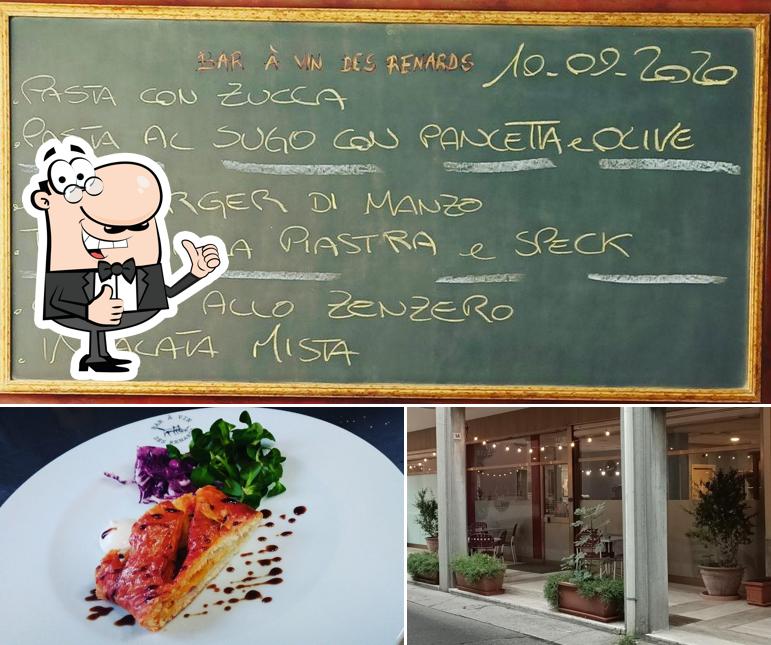 BAR À VIN DES RENARDS 10-09-2020
.PASTA CON ZUCCA
.PASTA AL SUGO CON PANCETTA e OLIVE
RGER DI MANZO
LA PIASTRA e SPECK
ALLO ZENZERO
. INSALATA MISTA
BAR À VIN
DES RENARDS